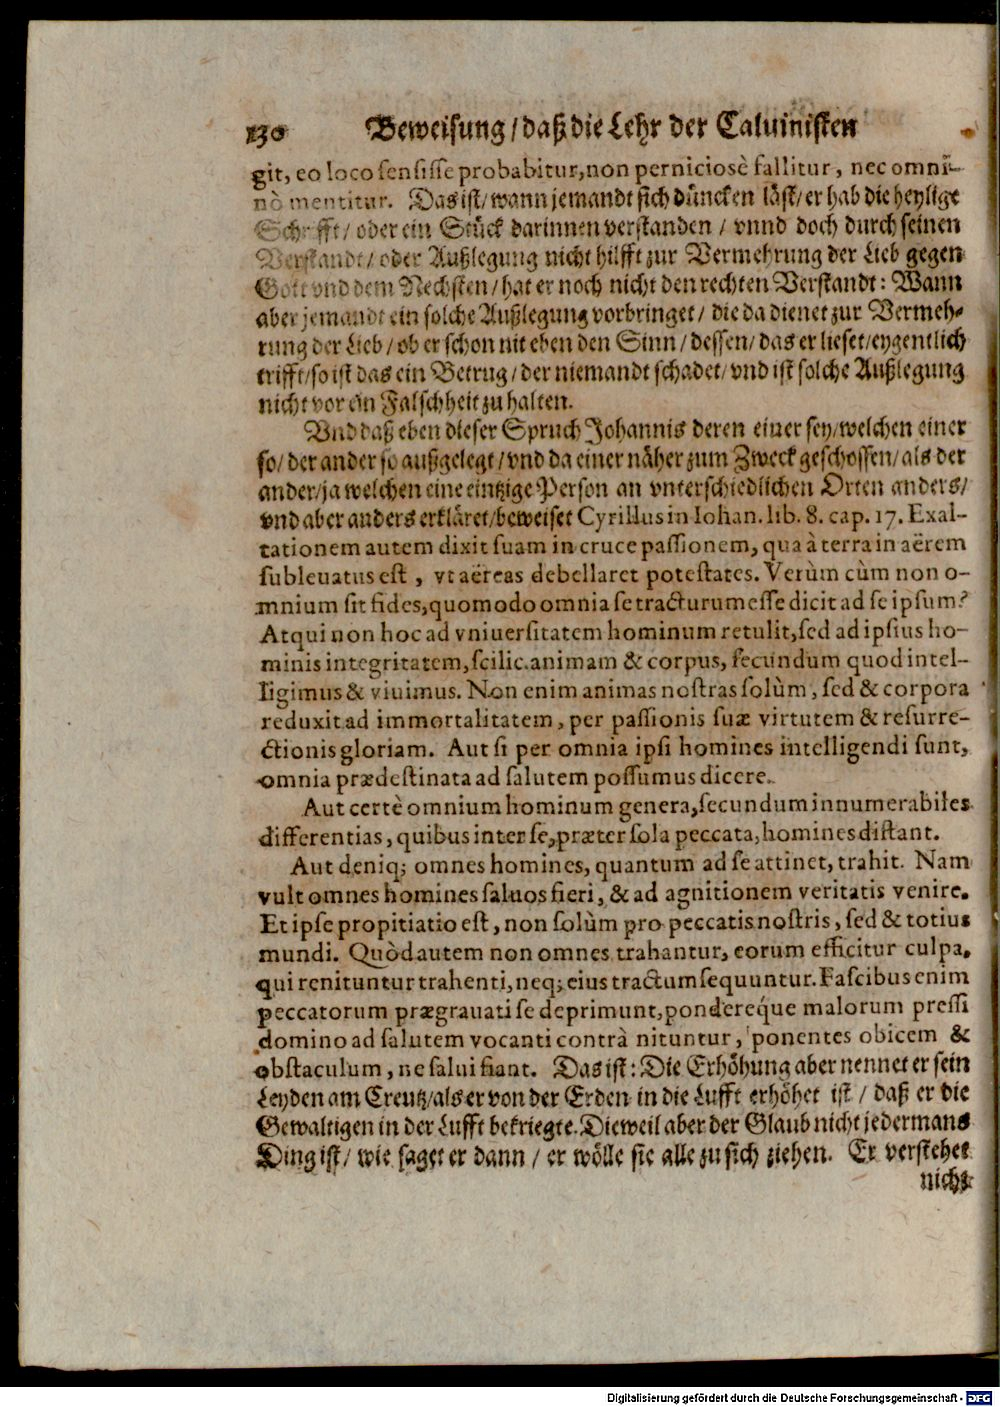 130 Beweisung / daß die Lehr der Caluinisten
git, eo loco sensisse probabitur, non perniciosè fallitur, nec omni-
nò mentitur. Das ist / wann jemandt sich duͤncken läst / er hab die heylige
Schrifft / oder ein Stuͤck darinnen verstanden / vnnd doch durch seinen
Verstandt / oder Außlegung nicht hilfft zur Vermehrung der Lieb gegen
Gott vnd dem Nechsten / hat er noch nicht den rechten Verstandt: Wann
aber jemandt ein solche Außlegung vorbringet / die da dienet zur Vermeh-
rung der Lieb / ob er schon nit eben den Sinn / dessen / das er lieset / eygentlich
trifft / so ist das ein Betrug / der niemandt schadet / vnd ist solche Außlegung
nicht vor ein Falschheit zu halten.
Vnd daß eben dieser Spruch Johannis deren einer sey / welchen einer
so / der ander so außgelegt / vnd da einer näher zum Zweck geschossen / als der
ander / ja welchen eine eintzige Person an vnterschiedlichen Orten anders /
vnd aber anders erkläret / beweiset Cyrillus in Iohan. lib. 8. cap. 17. Exal-
tationem autem dixit suam in cruce passionem, qua à terra in aërem
subleuatus est, vt aëreas debellaret potestates. Verùm cùm non o-
mnium sit fides, quomodo omnia se tracturum esse dicit ad se ipsum?
Atqui non hoc ad vniuersitatem hominum retulit, sed ad ipsius ho-
minis integritatem, scilic. animam & corpus, secundum quod intel-
ligimus & viuimus. Non enim animas nostras solùm, sed & corpora
reduxit ad immortalitatem, per passionis suæ virtutem & resurre-
ctionis gloriam. Aut si per omnia ipsi homines intelligendi sunt,
omnia prædestinata ad salutem possumus dicere.
Aut certè omnium hominum genera, secundum innumerabiles
differentias, quibus inter se, præter sola peccata, homines distant.
Aut deniq; omnes homines, quantum ad se attinet, trahit. Nam
vult omnes homines saluos fieri, & ad agnitionem veritatis venire.
Et ipse propitiatio est, non solùm pro peccatis nostris, sed & totius
mundi. Quòd autem non omnes trahantur, eorum efficitur culpa,
qui renituntur trahenti, neq; eius tractum sequuntur. Fascibus enim
peccatorum prægrauati se deprimunt, ponderéque malorum pressi
domino ad salutem vocanti contrà nituntur, ponentes obicem &
obstaculum, ne salui fiant. Das ist: Die Erhoͤhung aber nennet er sein
Leyden am Creutz / als er von der Erden in die Lufft erhoͤhet ist / daß er die
Gewaltigen in der Lufft bekriegte. Dieweil aber der Glaub nicht jedermans
Ding ist / wie saget er dann / er woͤlle sie alle zu sich ziehen. Er verstehet
nicht
Digitalisierung gefördert durch die Deutsche Forschungsgemeinschaft - DFG